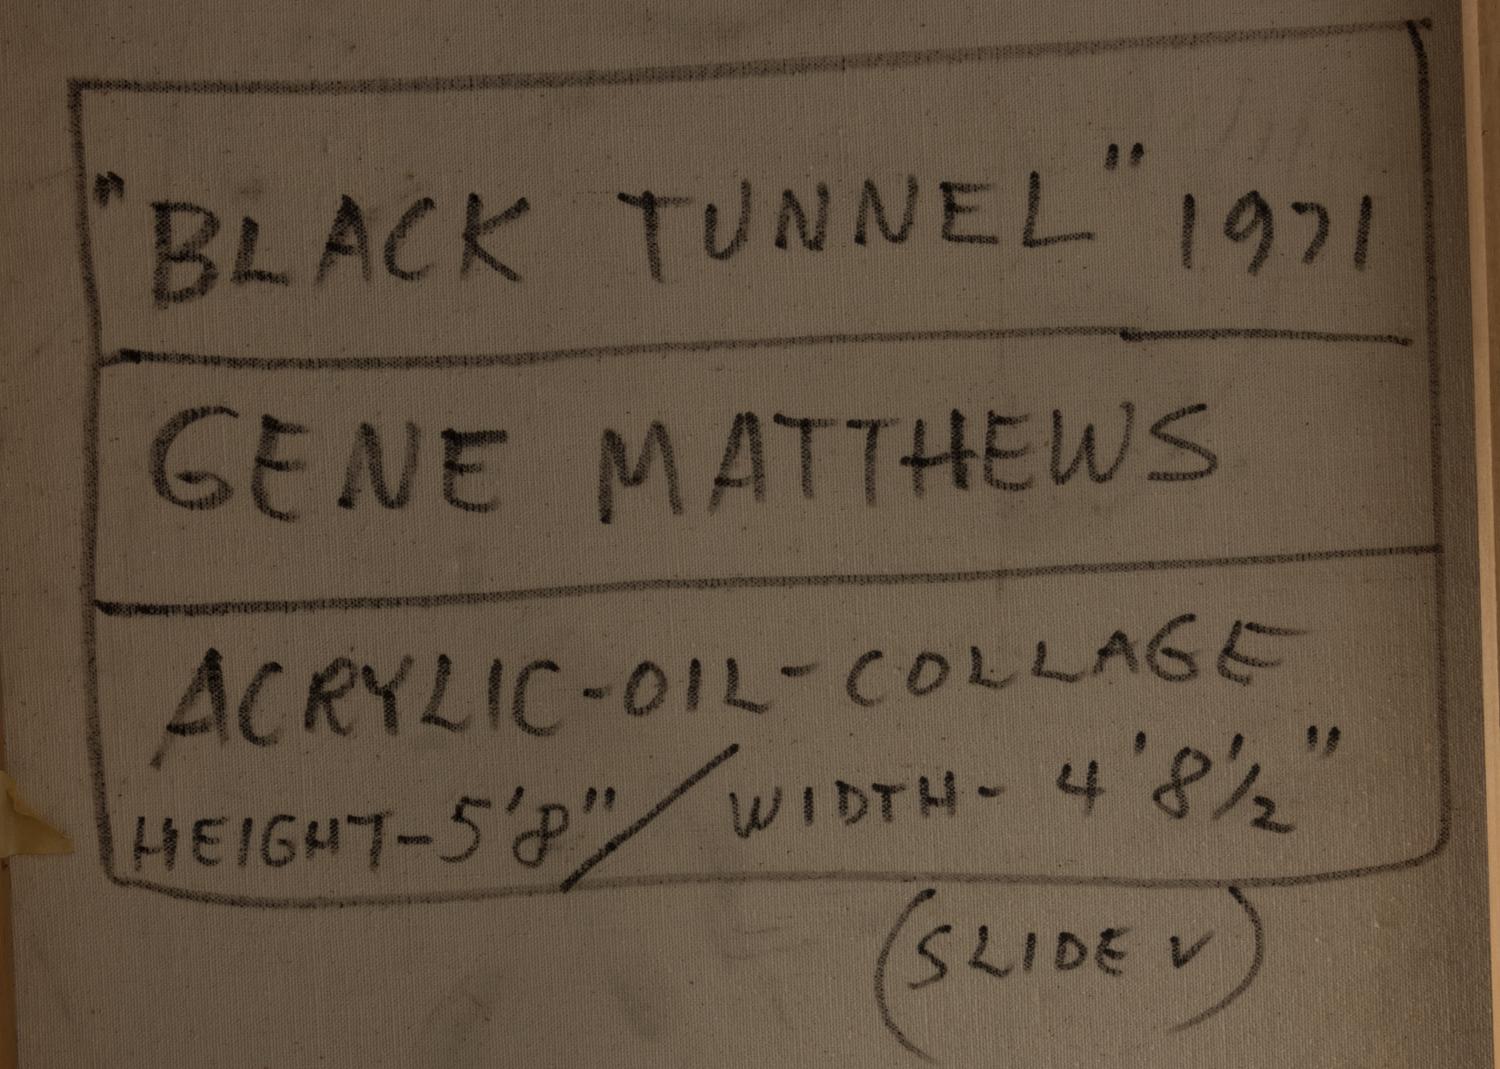 "BLACK TUNNEL" 1971
GENE MATTHEWS
ACRYLIC-OIL-COLLAGE
HEIGHT-5'8" / WIDTH- 4'8 1/2"
(SLIDE ✓)